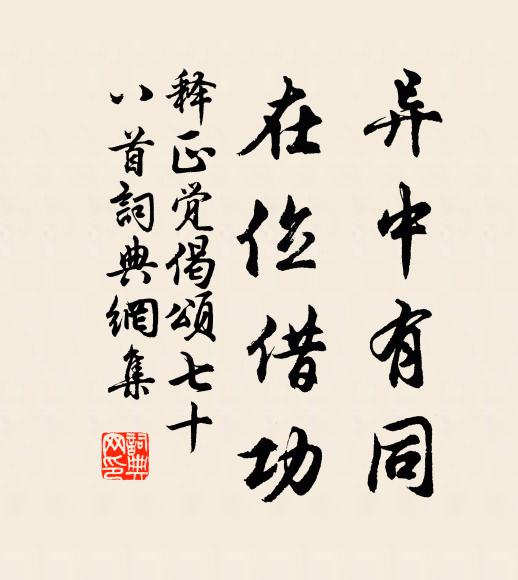 异中有同
在位借功
释正觉偈颂七十
八首詞典網集
詞典网印